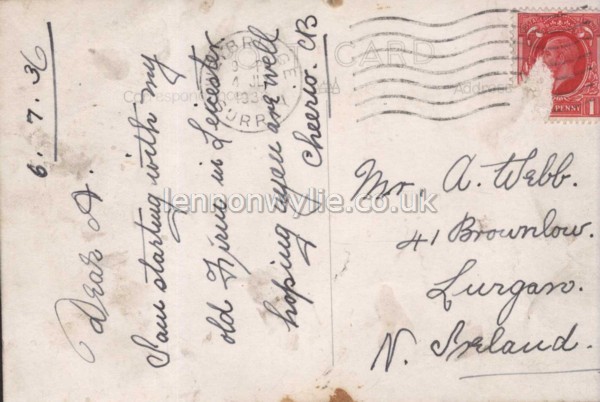 6.7.36
Dear A.
I am starting with my
old Firm in Leicester.
hoping you are well
Cheerio. CB
POST CARD
Correspondence
Address
BRIDGE
193
SURR
PENNY
1
Mr. A. Webb.
41 Brownlow.
Lurgan.
N. Ireland.
lennonwylie.co.uk